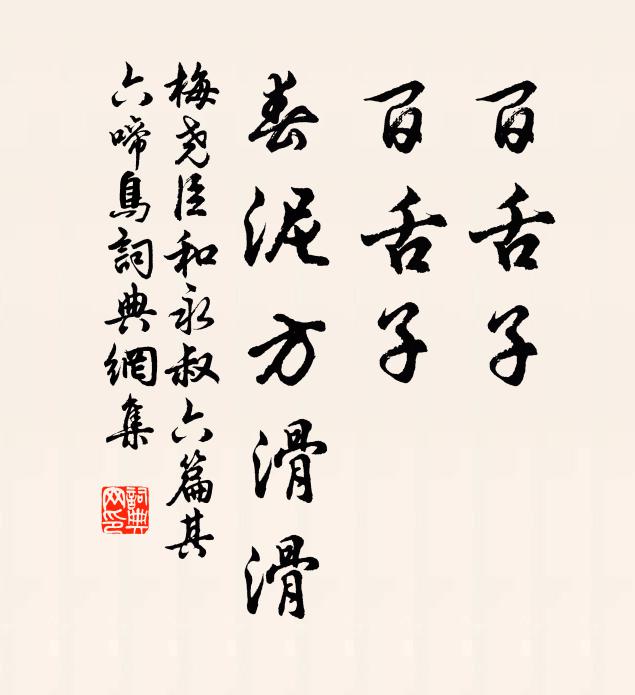 百舌子
百舌子
春泥方滑滑
梅尧臣和永叔六篇其
六啼鳥詞典網集
詞典
网印